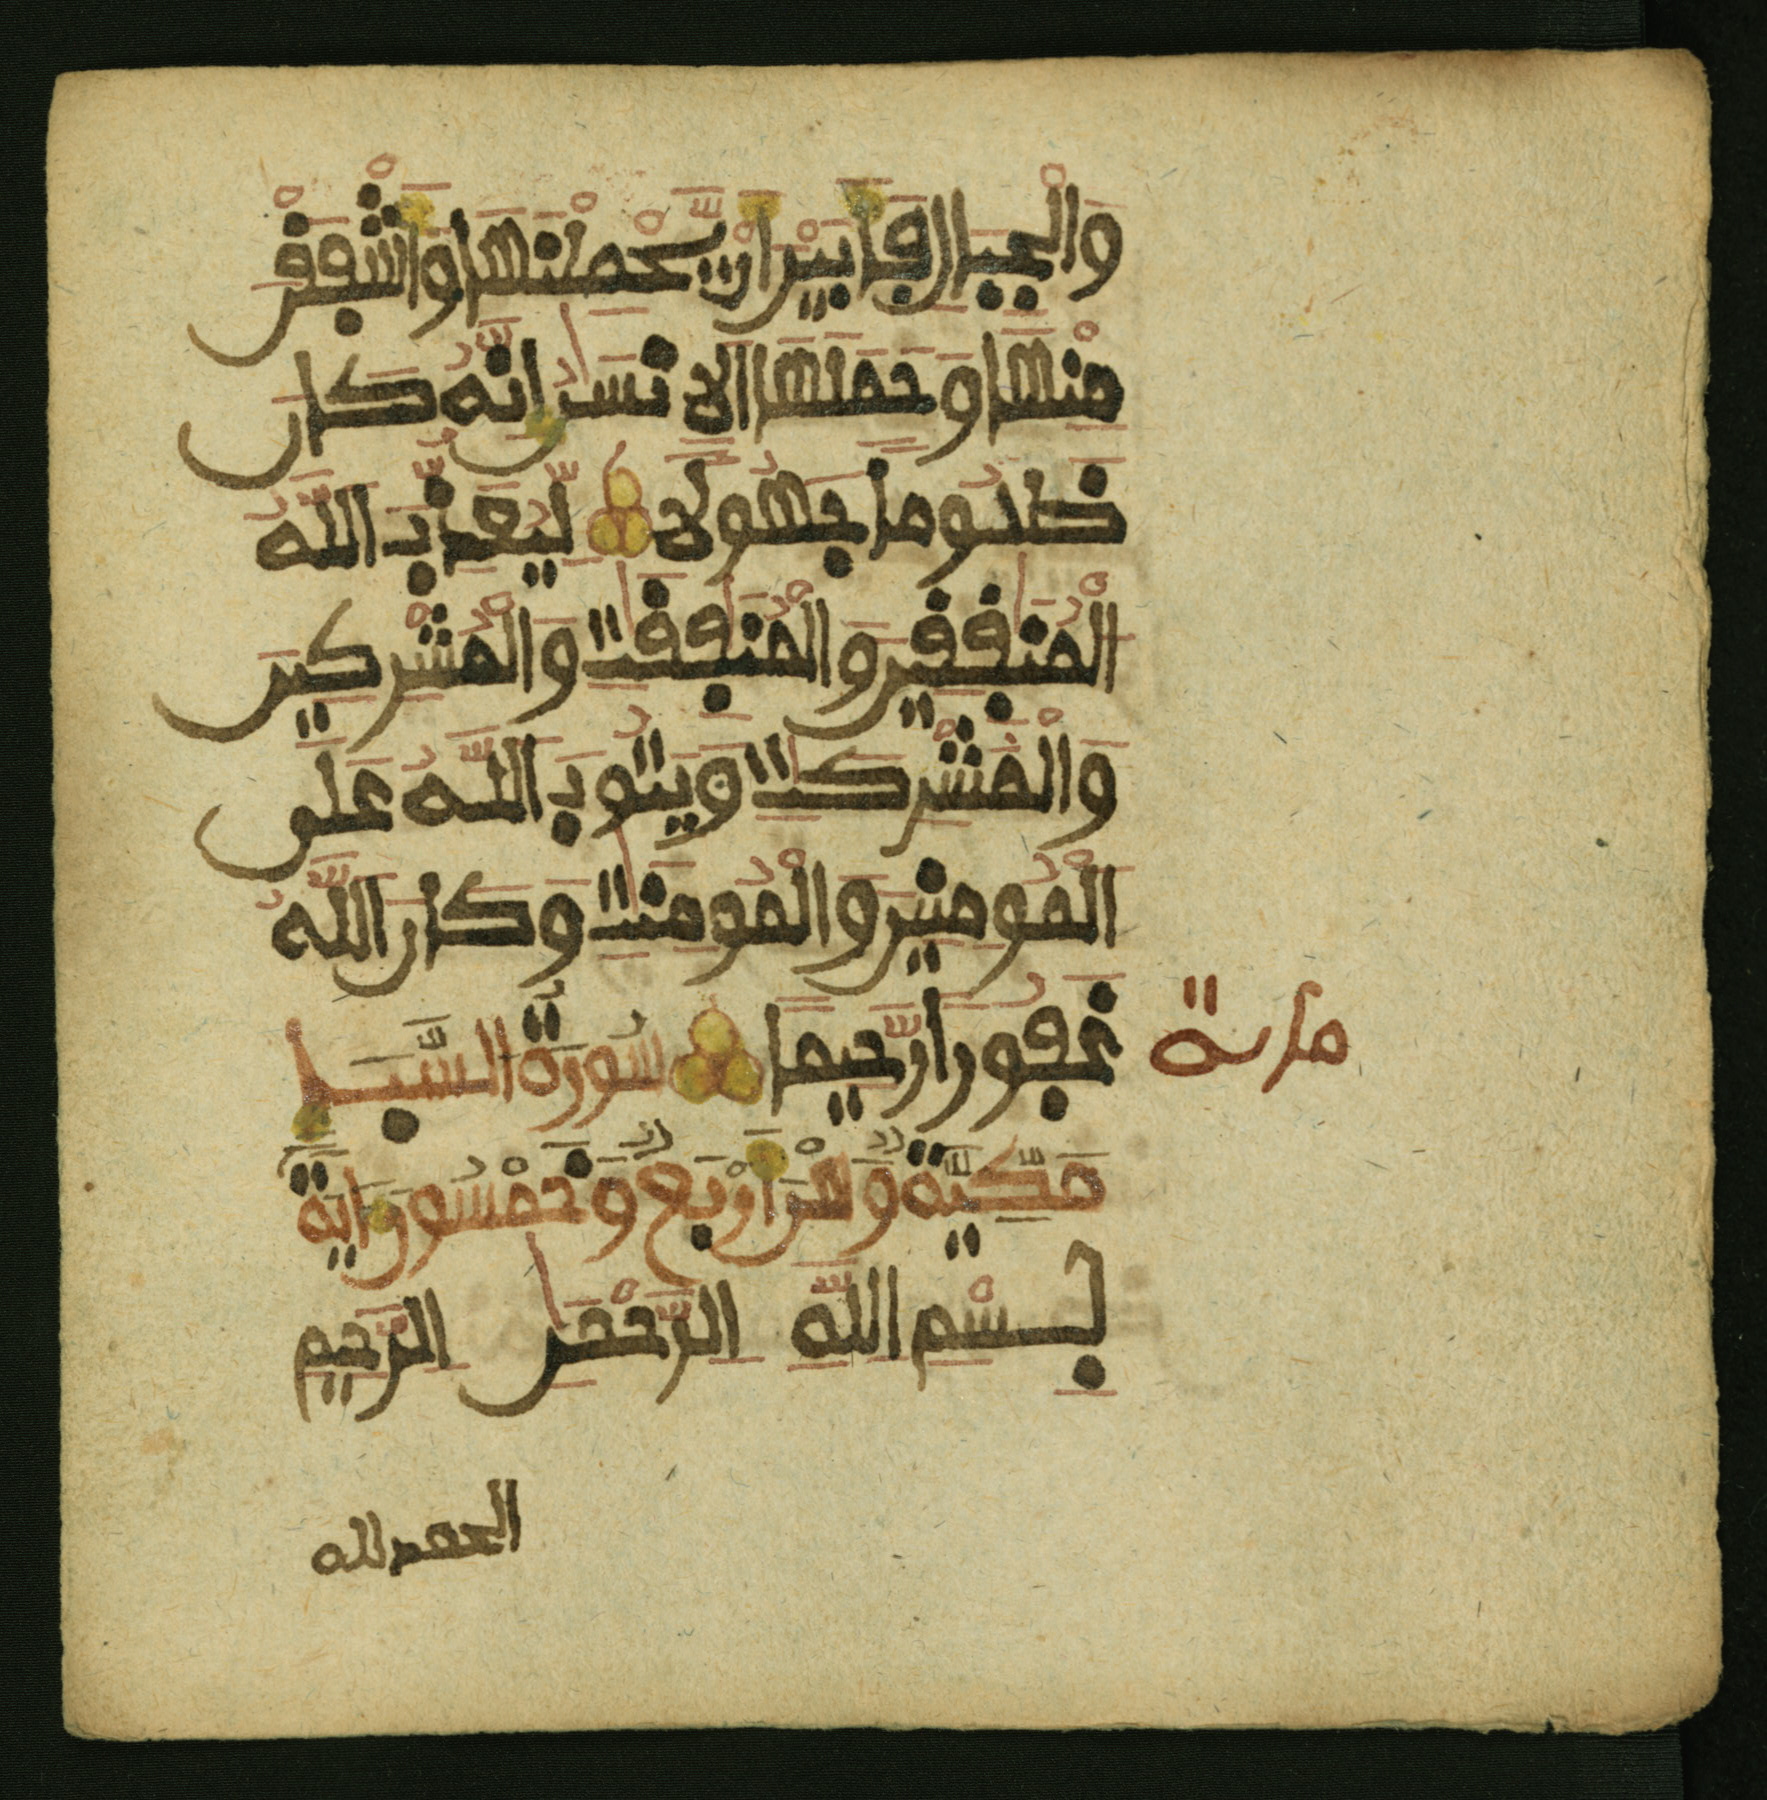 وَالْجِبَالِ فَأَبَيْنَ أَنْ يَّحْمِلْنَهَا وَأَشْفَقْنَ
مِنْهَا وَحَمَلَهَا الِانسَٰنُ إِنَّهُ كَانَ
ظَلُومًا جَهُولًا لِّيُعَذِّبَ اللَّهُ
الْمُنَٰفِقِينَ وَالْمُنَٰفِقَٰتِ وَالْمُشْرِكِينَ
وَالْمُشْرِكَٰتِ وَيَتُوبَ اللَّهُ عَلَى
الْمُومِنِينَ وَالْمُومِنَٰتِ وَكَانَ اللَّهُ
غَفُورًا رَّحِيمًا سُورَةُ السَّبَإِ
ماىة
مَكِّيَّةٌ وَهْيَ أَرْبَعٌ وَخَمْسُونَ ءَايَةً
بِسْمِ اللَّهِ الرَّحْمَٰنِ الرَّحِيمِ
الحمد لله